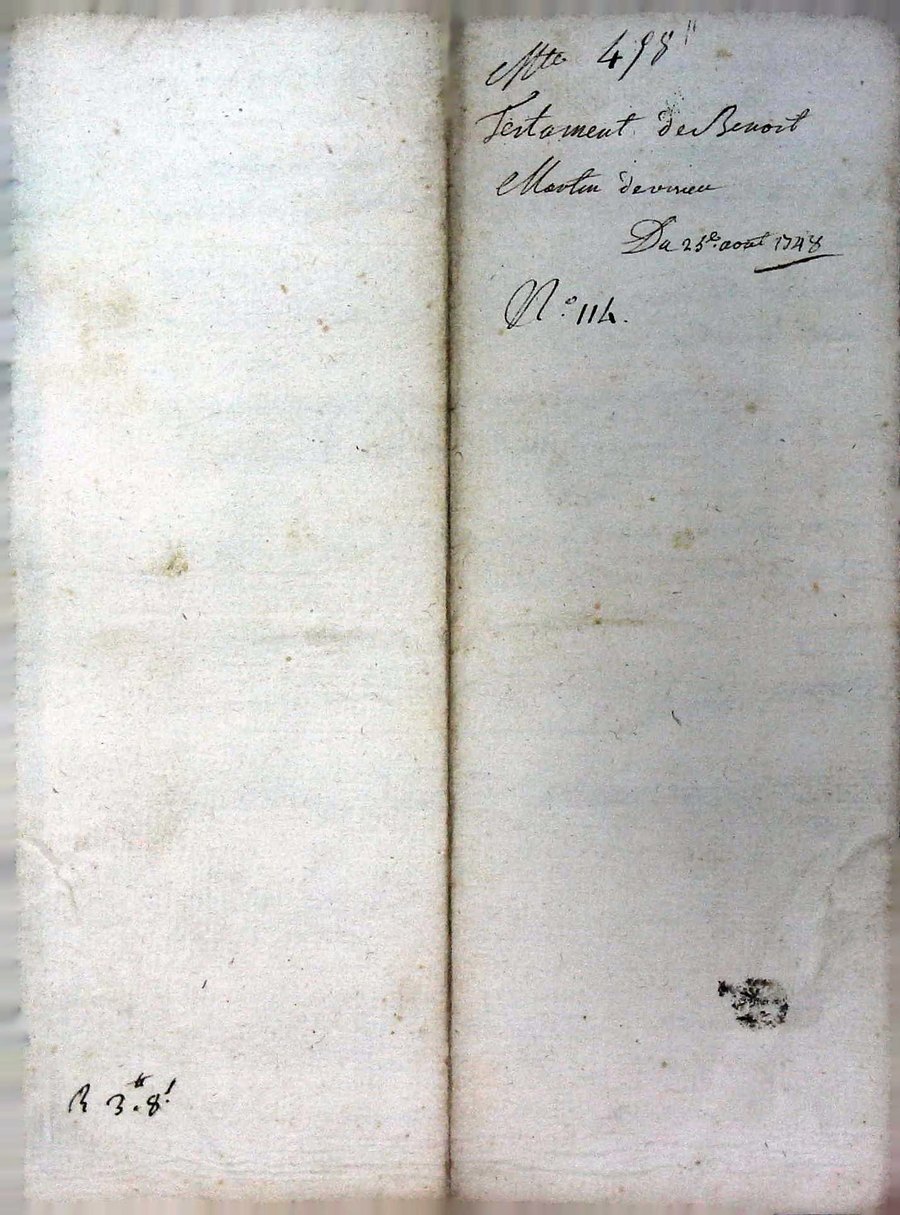 498
Testament de Benoit
Martin de virieu
Du 25e. aout 1748
N.° 114.
R 3.tt 8.s